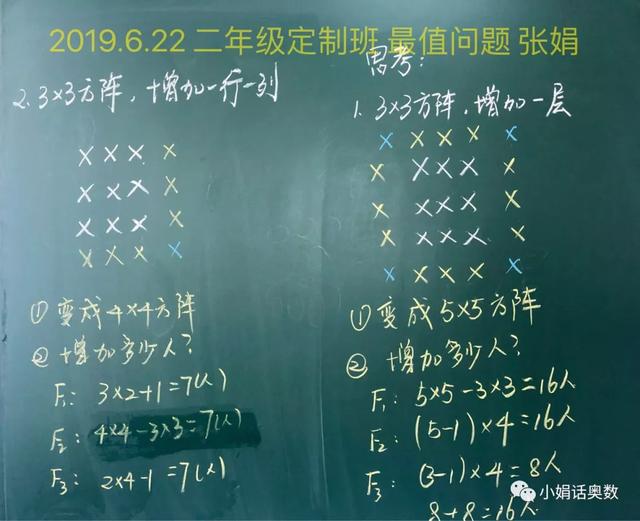 2019.6.22 二年级定制班 最值问题 张娟
2. 3×3方阵，增加一行一列
× × × ×
× × × ×
× × × ×
× × × ×
① 变成4×4方阵
② 增加多少人？
F1: 3×2+1=7(人)
F2: 4×4-3×3=7(人)
F3: 2×4-1=7(人)
思考：
1. 3×3方阵，增加一层
× × × × ×
× × × × ×
× × × × ×
× × × × ×
× × × × ×
① 变成5×5方阵
② 增加多少人？
F1: 5×5-3×3=16人
F2: (5-1)×4=16人
F3: (3-1)×4=8人
8+8=16人
小娟话奥数